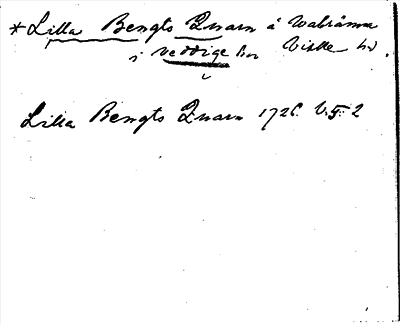 *Lilla Bengts Quarn å Wabränna
i Veddige sn Viske hd.
Lilla Bengts Quarn 1726. V.5: 2